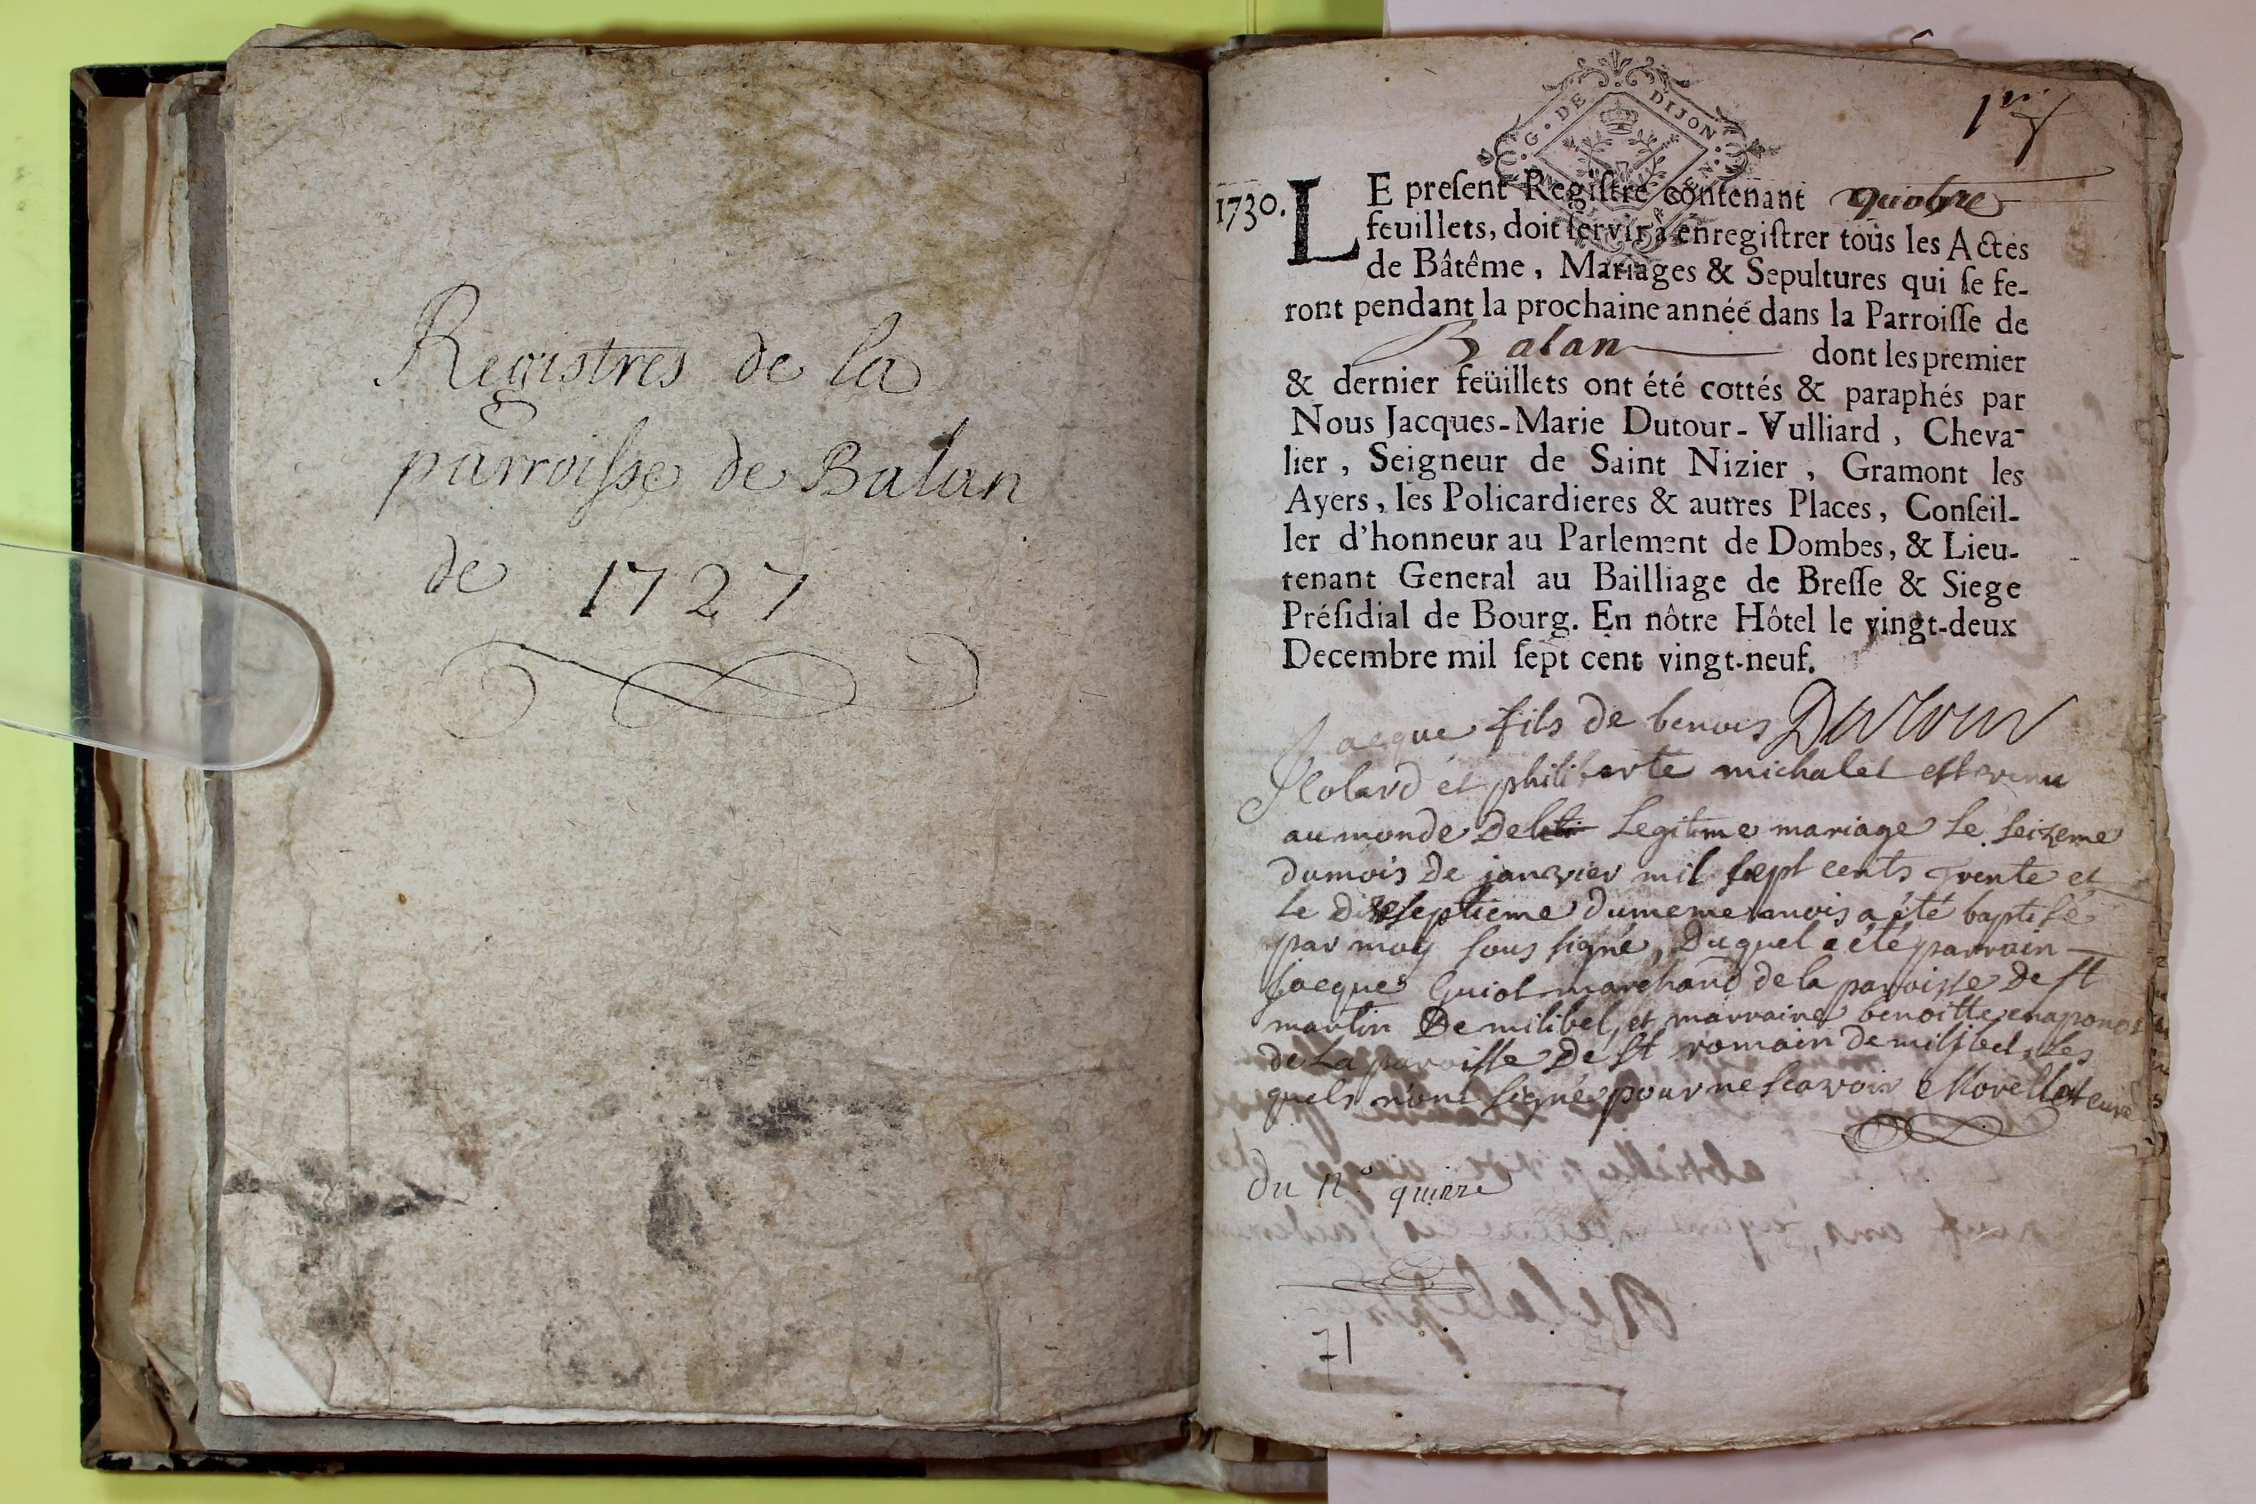 Registres de la
parroisse de Balan
de 1727
G. DE DIJON
1er
1730.
LE preſent Regiſtre contenant quatre
feuillets, doit ſervir à enregiſtrer tous les Actes
de Bâtême, Mariages & Sepultures qui ſe fe-
ront pendant la prochaine annéé dans la Parroiſſe de
Balan dont les premier
& dernier feüillets ont été cottés & paraphés par
Nous Jacques-Marie Dutour-Vulliard, Cheva-
lier, Seigneur de Saint Nizier, Gramont les
Ayers, les Policardieres & autres Places, Conſeil-
ler d'honneur au Parlement de Dombes, & Lieu-
tenant General au Bailliage de Breſſe & Siege
Préſidial de Bourg. En nôtre Hôtel le vingt-deux
Decembre mil ſept cent vingt-neuf.
Dutour
Jacque fils de benois
Colard et philiberte michalet est venu
au monde de legitime mariage le seizeme
du mois de janvier mil sept cents trente et
le dixseptieme du meme mois a été baptisé
par moy sous signé, duquel a été parrain
jacques Guiot marchand de la paroisse de st
martin de milibel, et marraine benoitte
de la paroisse de st romain de milibel, les
quels n'ont signé pour ne scavoir Morellet curé
du n° quinze
71